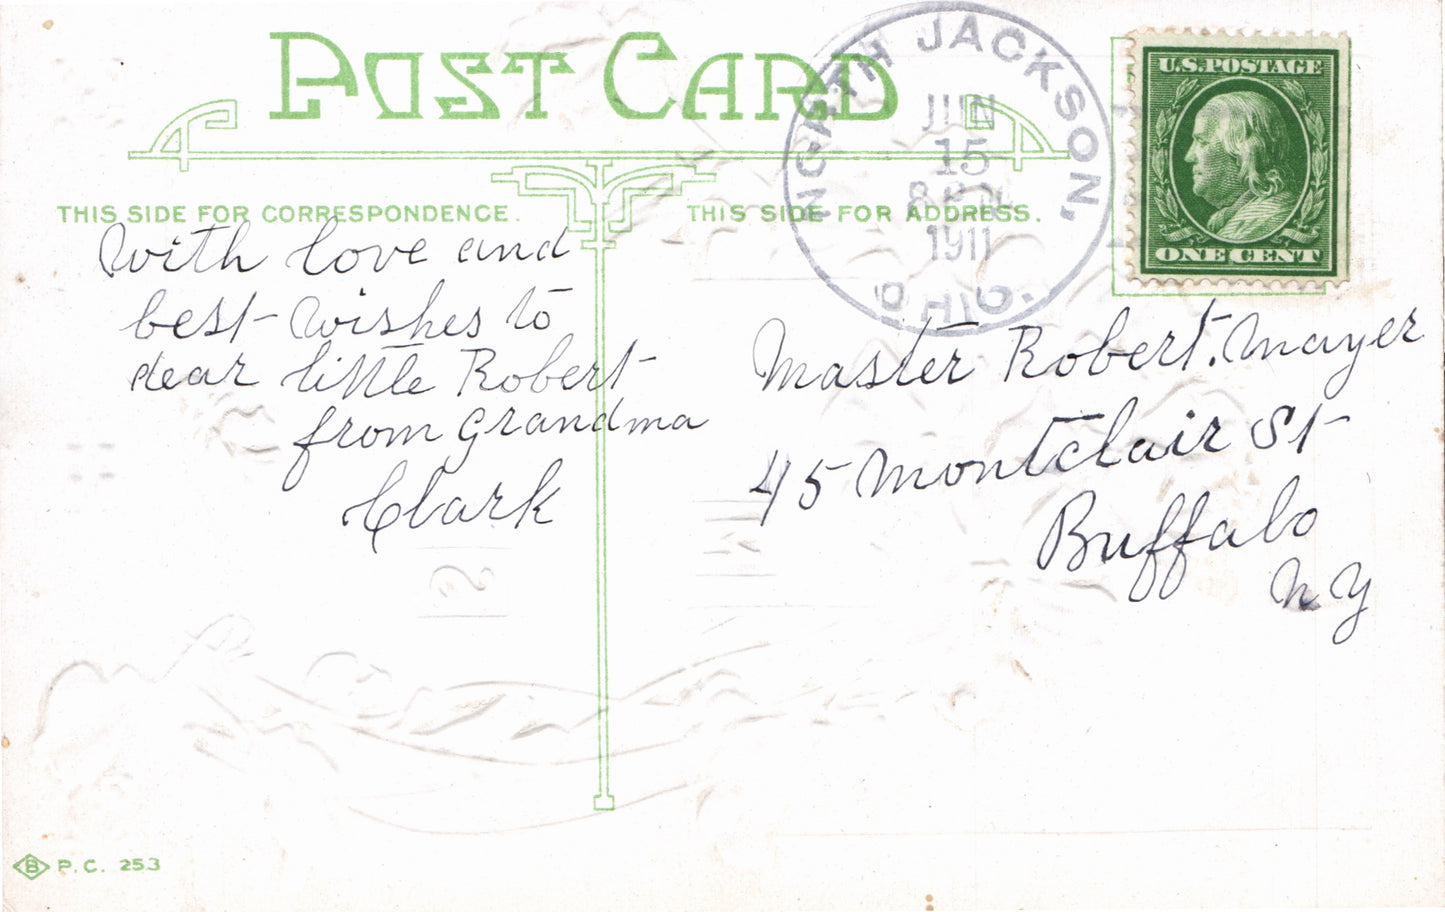 POST CARD
THIS SIDE FOR CORRESPONDENCE.
THIS SIDE FOR ADDRESS.
NORTH JACKSON,
JUN
15
8 PM
1911
OHIO.
U.S. POSTAGE
ONE CENT
With love and
best wishes to
dear little Robert
from Grandma
Clark
Master Robert. Mayer
45 Montclair St
Buffalo
NY
B P.C. 253